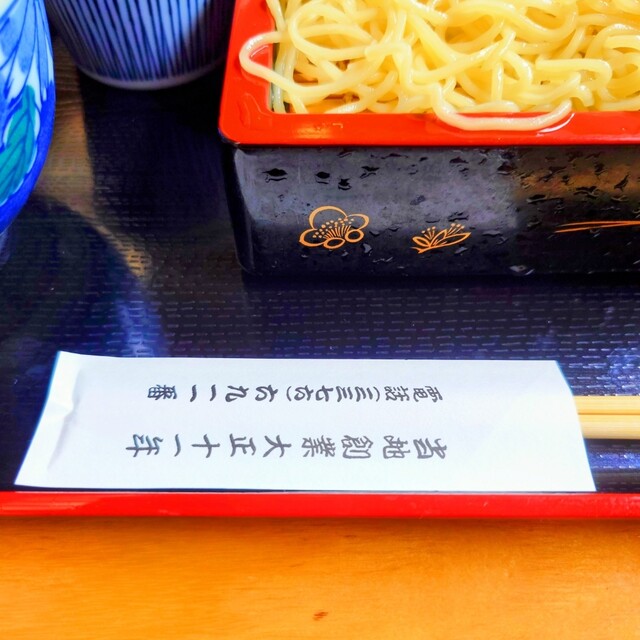 當地創業大正十一年
電話(三三七六)六九二一番